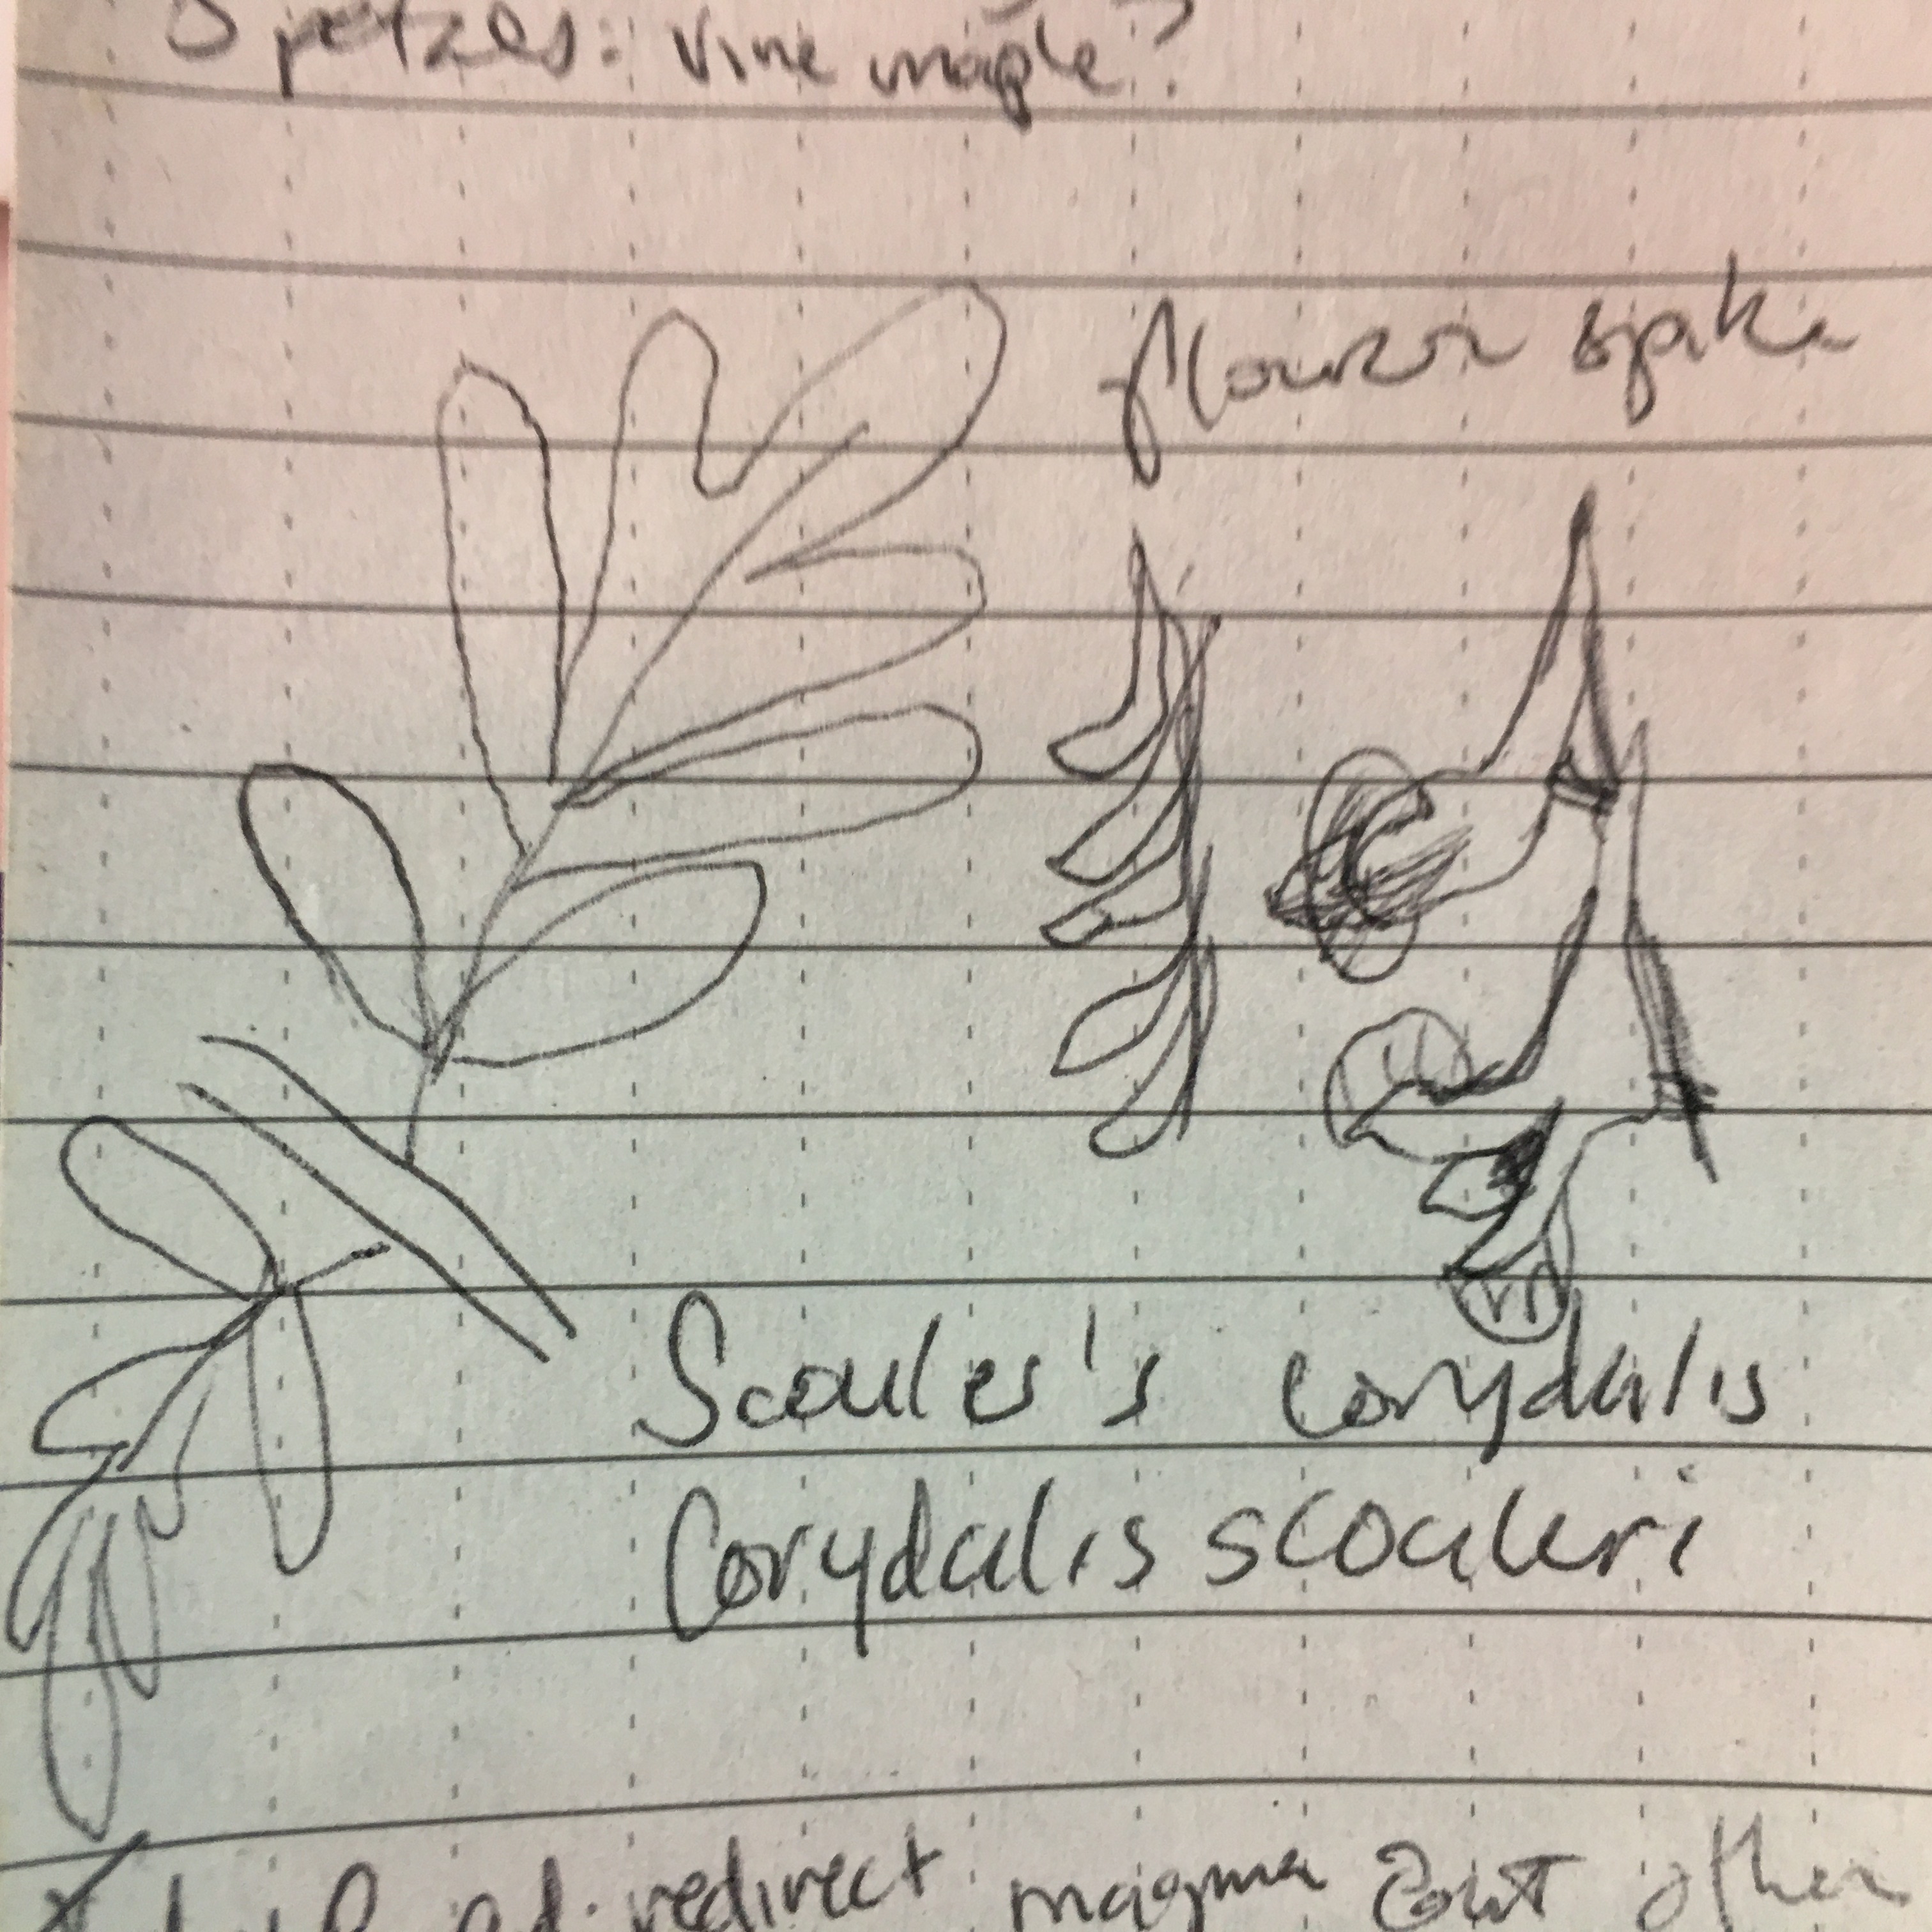 petals: vine maple?
flower spike
Scouler's corydalis
Corydalis scouleri
redirect magma out other